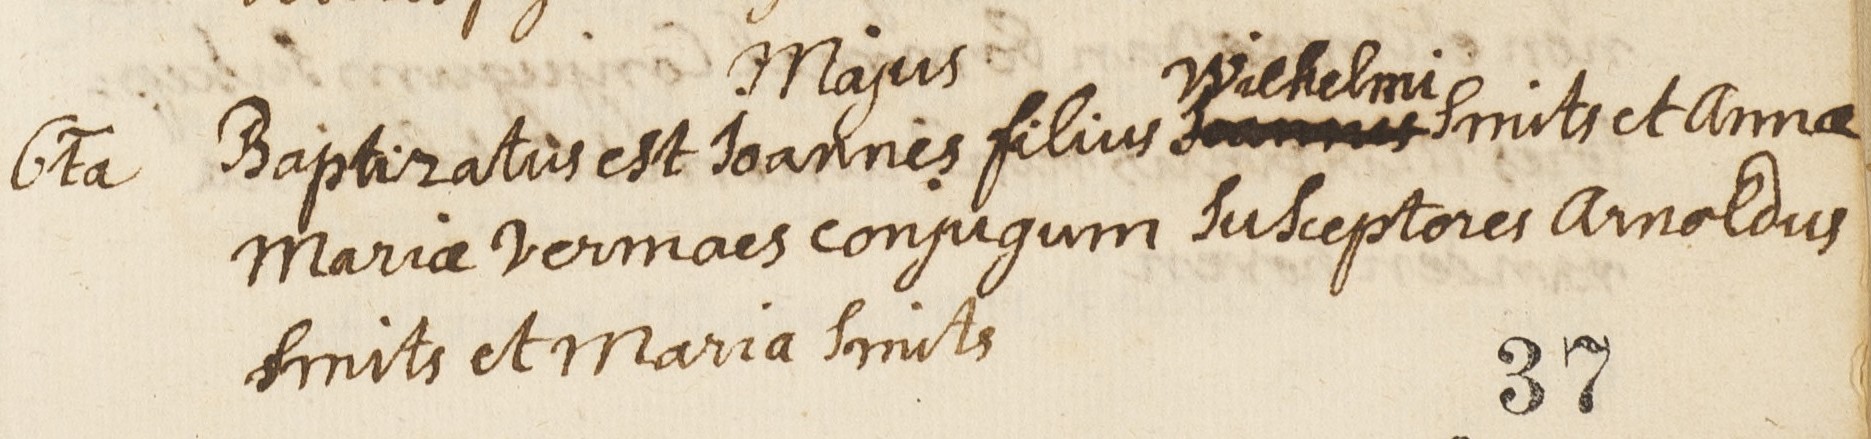 Majus
Wilhelmi
6ta Baptizatus est Joannes filius Joannis Smits et Annæ
Mariæ Vermaes conjugum Susceptores Arnoldus
Smits et Maria Smits
37